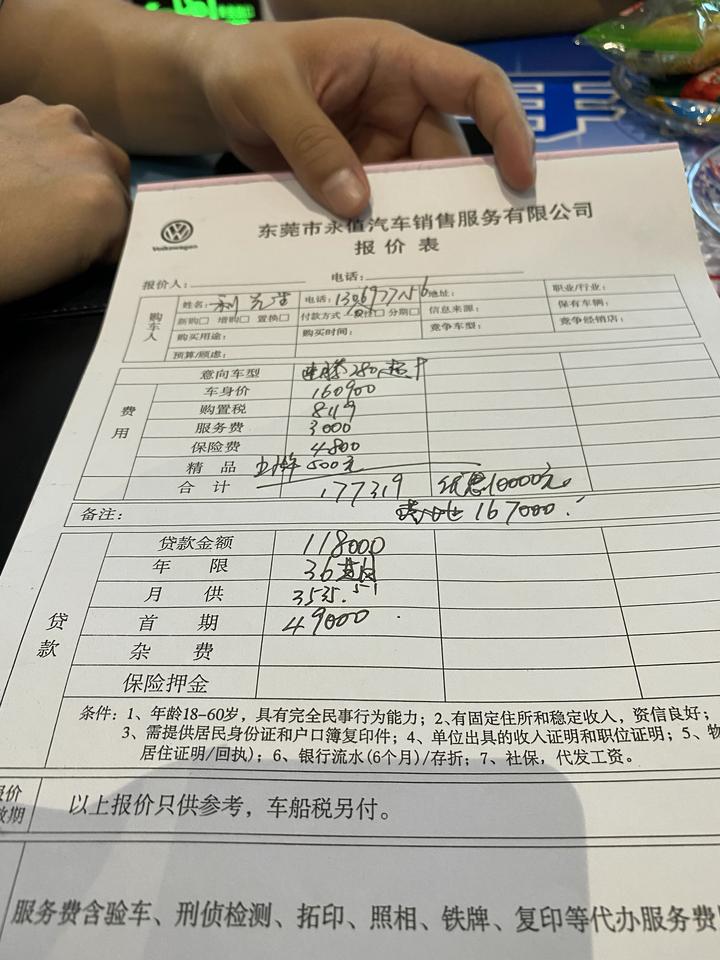 Volkswagen
东莞市永值汽车销售服务有限公司
报价表
报价人： 电话：
购车人
姓名： 电话： 地址： 职业/行业：
新购□ 增购□ 置换□ 付款方式 □ 分期□ 信息来源： 保有车辆：
购买用途： 购买时间： 竞争车型： 竞争经销店：
预算/顾虑：
费用
意向车型 速腾280
车身价 160900
购置税 8119
服务费 3000
保险费 4800
精品 500元
合计 177319 优惠10000元。
备注： 167000.
贷款
贷款金额 118000
年限 36
月供 3535.51
首期 49000
杂费
保险押金
条件：1、年龄18-60岁，具有完全民事行为能力；2、有固定住所和稳定收入，资信良好；
3、需提供居民身份证和户口簿复印件；4、单位出具的收入证明和职位证明；5、物
居住证明/回执)；6、银行流水(6个月)/存折；7、社保，代发工资。
以上报价只供参考，车船税另付。
服务费含验车、刑侦检测、拓印、照相、铁牌、复印等代办服务费